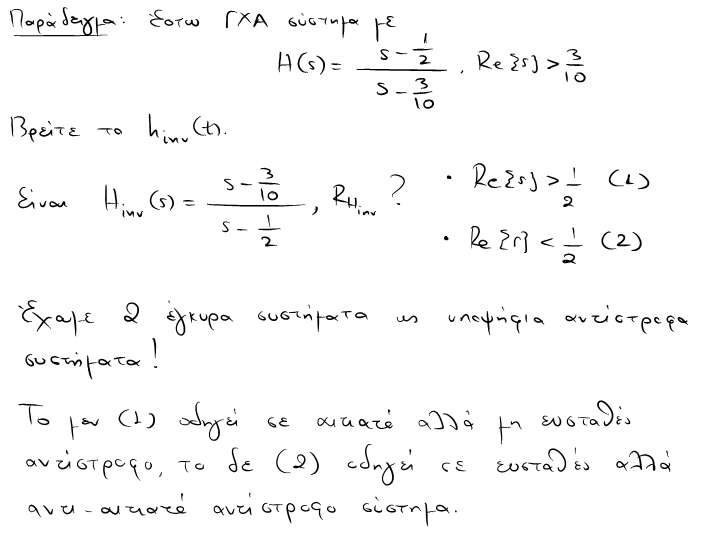 Παράδειγμα: Έστω ΓΧΑ σύστημα με
H(s) = \frac{s - \frac{1}{2}}{s - \frac{3}{10}}, Re{s} > \frac{3}{10}
Βρείτε το h_{inv}(t).
Είναι H_{inv}(s) = \frac{s - \frac{3}{10}}{s - \frac{1}{2}}, R_{H_{inv}} ? • Re{s} > \frac{1}{2} (1)
• Re{s} < \frac{1}{2} (2)
Έχουμε 2 έγκυρα συστήματα ως υποψήφια αντίστροφα
συστήματα!
Το μεν (1) οδηγεί σε αιτιατό αλλά μη ευσταθές
αντίστροφο, το δε (2) οδηγεί σε ευσταθές αλλά
αντι-αιτιατό αντίστροφο σύστημα.